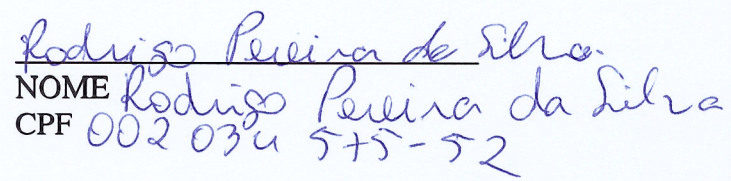 Rodrigo Pereira da Silva
NOME Rodrigo Pereira da Silva
CPF 002 034 575-52